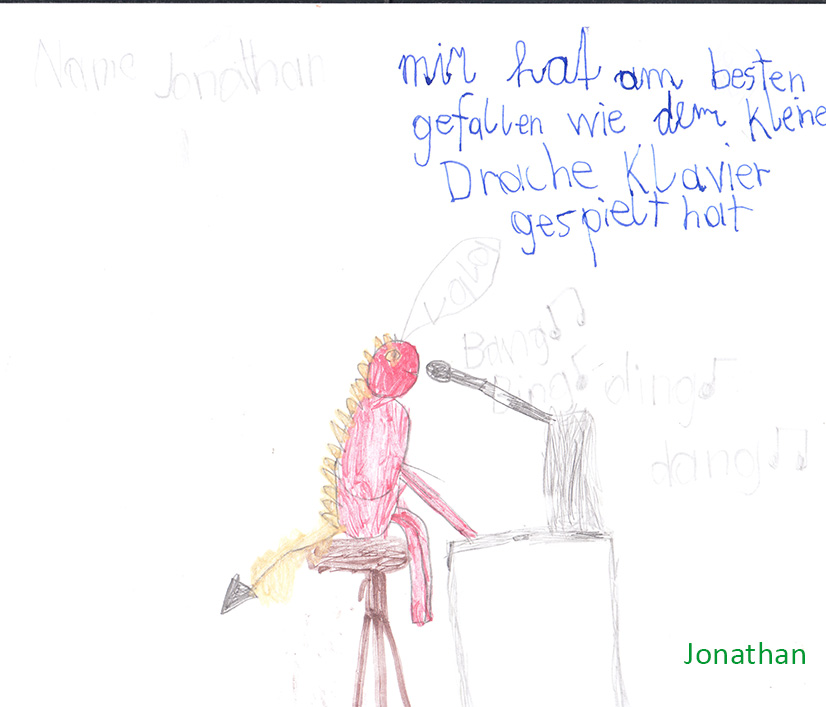 Name Jonathan
mir hat am besten
gefallen wie dem kleine
Drache Klavier
gespielt hat
Lala
Bang
Bing ding
dang
Jonathan